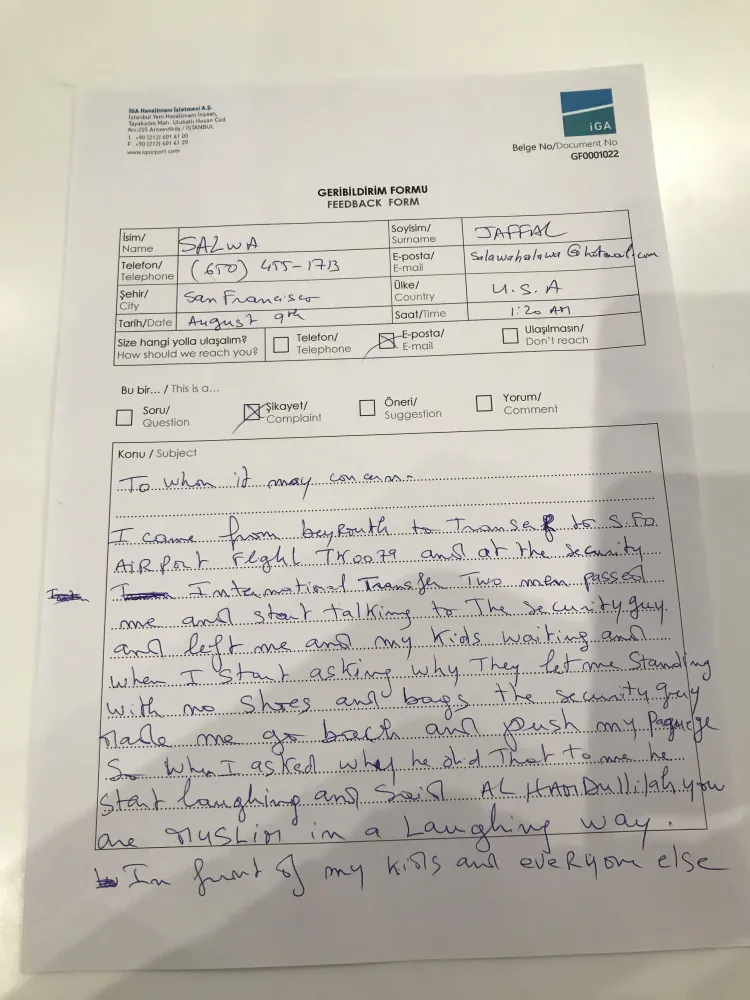 İGA Havalimanı İşletmesi A.Ş.
İstanbul Yeni Havalimanı İnşaatı,
Tayakadın Mah. Ulubatlı Hasan Cad
No:255 Arnavutköy / İSTANBUL
T +90 (212) 601 41 00
F +90 (212) 601 41 20
www.igairport.com
iGA
Belge No/Document No
GF0001022
GERİBİLDİRİM FORMU
FEEDBACK FORM
İsim/ Name SALWA Soyisim/ Surname JAFFAL
Telefon/ Telephone (650) 455-1713 E-posta/ E-mail Salawahalawa@hotmail.com
Şehir/ City San Francisco Ülke/ Country U.S.A
Tarih/Date August 9th Saat/Time 1:20 AM
Size hangi yolla ulaşalım? How should we reach you? Telefon/ Telephone E-posta/ E-mail Ulaşılmasın/ Don't reach
Bu bir... / This is a...
Soru/ Question Şikayet/ Complaint Öneri/ Suggestion Yorum/ Comment
Konu / Subject
To whom it may concern.
I came from beyrouth to Transef to S.F.O.
AIRPort Flght TK0079 and at the security
International Transfer Two men passed
me and start talking to The security guy.
and left me and my Kids waiting and
when I start asking why They let me Standing
with no Shoes and bags the security guy
Made me go back and push my
So When I asked why he did That to me he
Start laughing and Said AL HAMDullilah you
are MUSLIM in a Laughing way.
In front of my Kids and eveRyone else